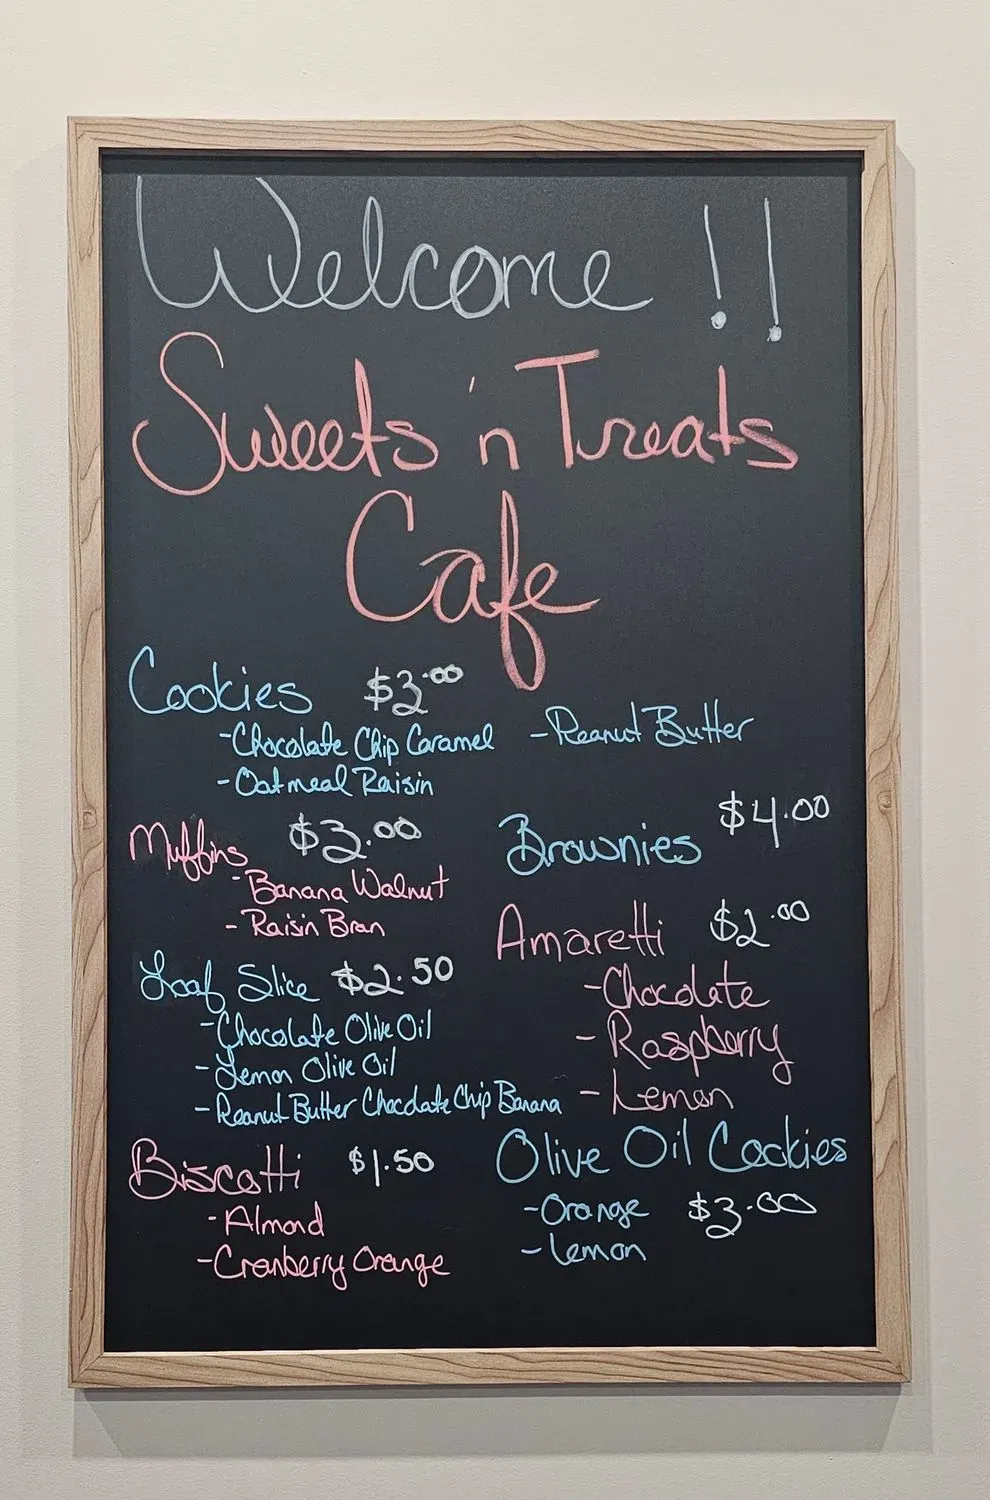 Welcome !!
Sweets 'n Treats
Cafe
Cookies $3.00
-Chocolate Chip Caramel
-Oatmeal Raisin
-Peanut Butter
Muffins $3.00
-Banana Walnut
-Raisin Bran
Loaf Slice $2.50
-Chocolate Olive Oil
-Lemon Olive Oil
-Peanut Butter Chocolate Chip Banana
Biscotti $1.50
-Almond
-Cranberry Orange
Brownies $4.00
Amaretti $2.00
-Chocolate
-Raspberry
-Lemon
Olive Oil Cookies
-Orange $3.00
-Lemon